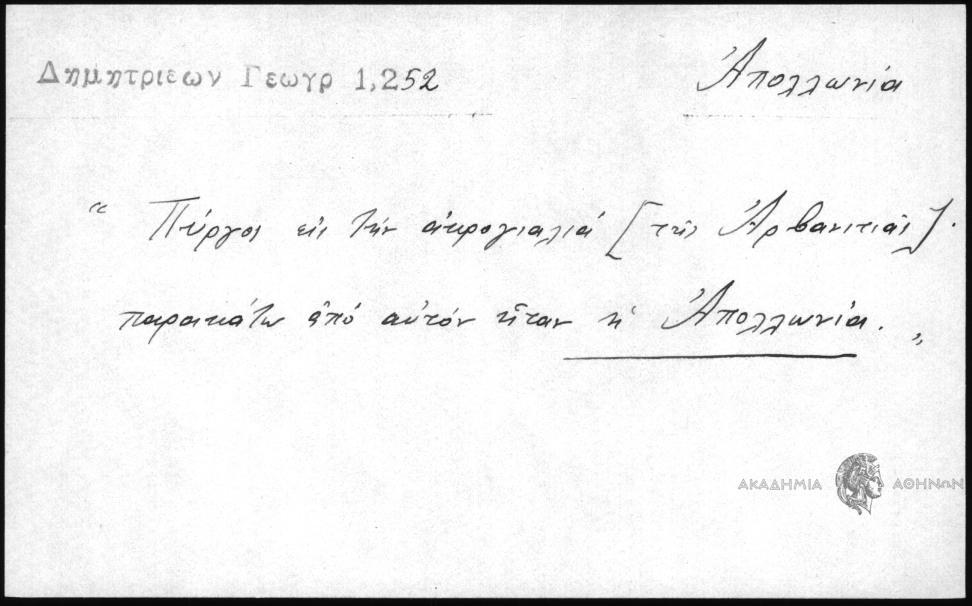 Δημητριεων Γεωγρ 1,252
Ἀπολλωνία
“ Πύργος εἰς τὴν ἀκρογιαλιά [τῆς Ἀρβανιτιᾶς].
παρακάτω ἀπό αὐτόν ἦταν ἡ Ἀπολλωνία. „
ΑΚΑΔΗΜΙΑ ΑΘΗΝΩΝ